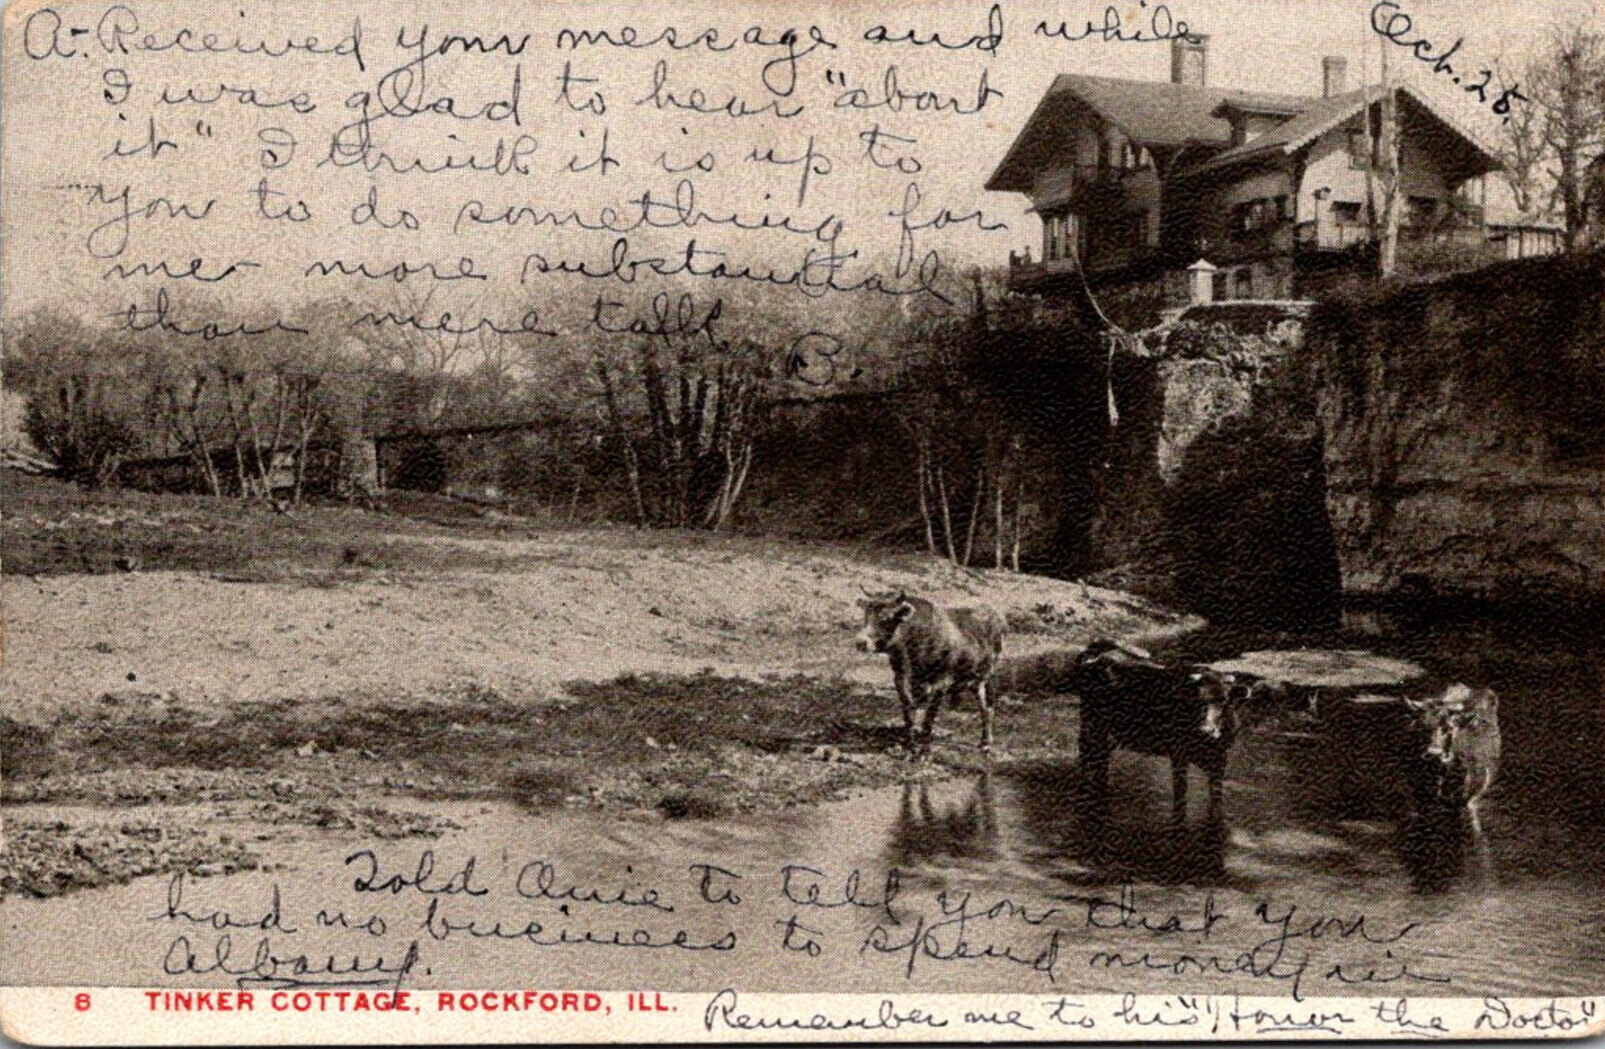 Oct. 25.
A- Received your message and while
I was glad to hear "about
it" I think it is up to
you to do something for
me more substantial
than mere talk
B.
Told Amie to tell you that you
had no business to spend money in
Albany.
8 TINKER COTTAGE, ROCKFORD, ILL.
Remember me to his "Honor the Doctor"